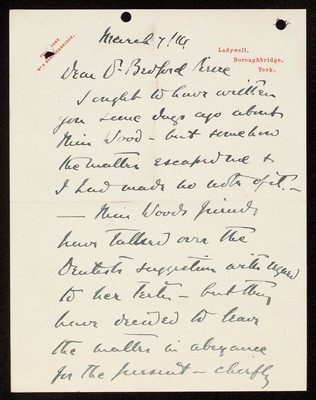 March 7/19
Ladywell,
Boroughbridge,
York.
Dear Dr Bedford Pierce
I ought to have written
you some days ago about
Miss Wood - but somehow
the matter escaped me &
I had made no note of it. -
- Miss Woods friends
have talked over the
Dentists suggestion with regard
to her teeth - but they
have decided to leave
the matter in abeyance
for the present - chiefly